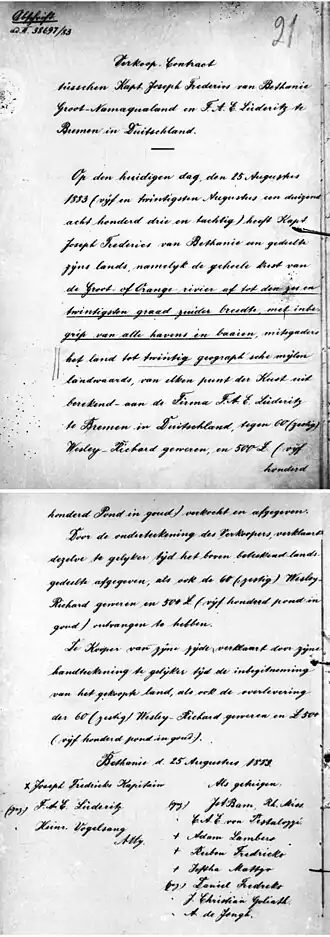 Abschrift
ad A. 38697/83
21
Verkoop-Contract
tusschen Kapt. Joseph Frederics van Bethanie
Groot-Namaqualand en F. A. E. Lüderitz te
Bremen in Duitschland.
Op den huidigen dag, den 25 Augustus
1883 (vijf en twintigsten Augustus een duizend
acht honderd drie en tachtig) heeft Kapt
Joseph Frederics van Bethanie een gedeelte
zijns lands, namelijk de geheele kust van
de Groot- of Orange rivier af tot den zes en
twintigsten graad zuider breedte, met inbe-
grip van alle havens en baaien, mitsgaders
het land tot twintig geographische mijlen
landwaards, van elken punt der Kust uit
berekend - aan de Firma F. A. E. Lüderitz
te Bremen in Duitschland, tegen 60 (zestig)
Wesley-Richard geweren, en 500 £ (vijf
honderd
honderd Pond in goud) verkocht en afgegeven.
Door de onderteekening des Verkopers, verklaart
dezelve te gelijker tijd het boven
gedeelte afgegeven, als ook de 60 (zestig) Wesley-
Richard geweren en 500 £ (vijf honderd pond in
goud) ontvangen te hebben.
De Kooper van zijne zijde verklaart door zijne
handteekening te gelijker tijd de inbezitneming
van het gekoopte land, als ook de overlevering
der 60 (zestig) Wesley-Richard geweren en £ 500
(vijf honderd pond in goud).
Bethanie d. 25 Augustus 1883.
x Joseph Fredericks Kapitein
Als getuigen.
(gez) F. A. E. Lüderitz
(gez) Joh Bam. Rh. Miss.
Heinr. Vogelsang
C. A. E. von Pestalozzi
+ Adam Lambers
+ Ruben Fredericks
+ Jephta
(gez) Daniel Fredricks
J. Christian Goliath
A. de Jongh.